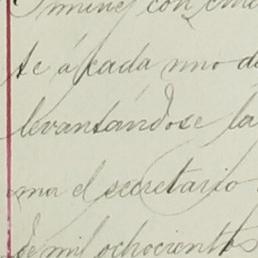 con
te á cada uno de
levantándose la
ma el secretario
de mil ochocientos